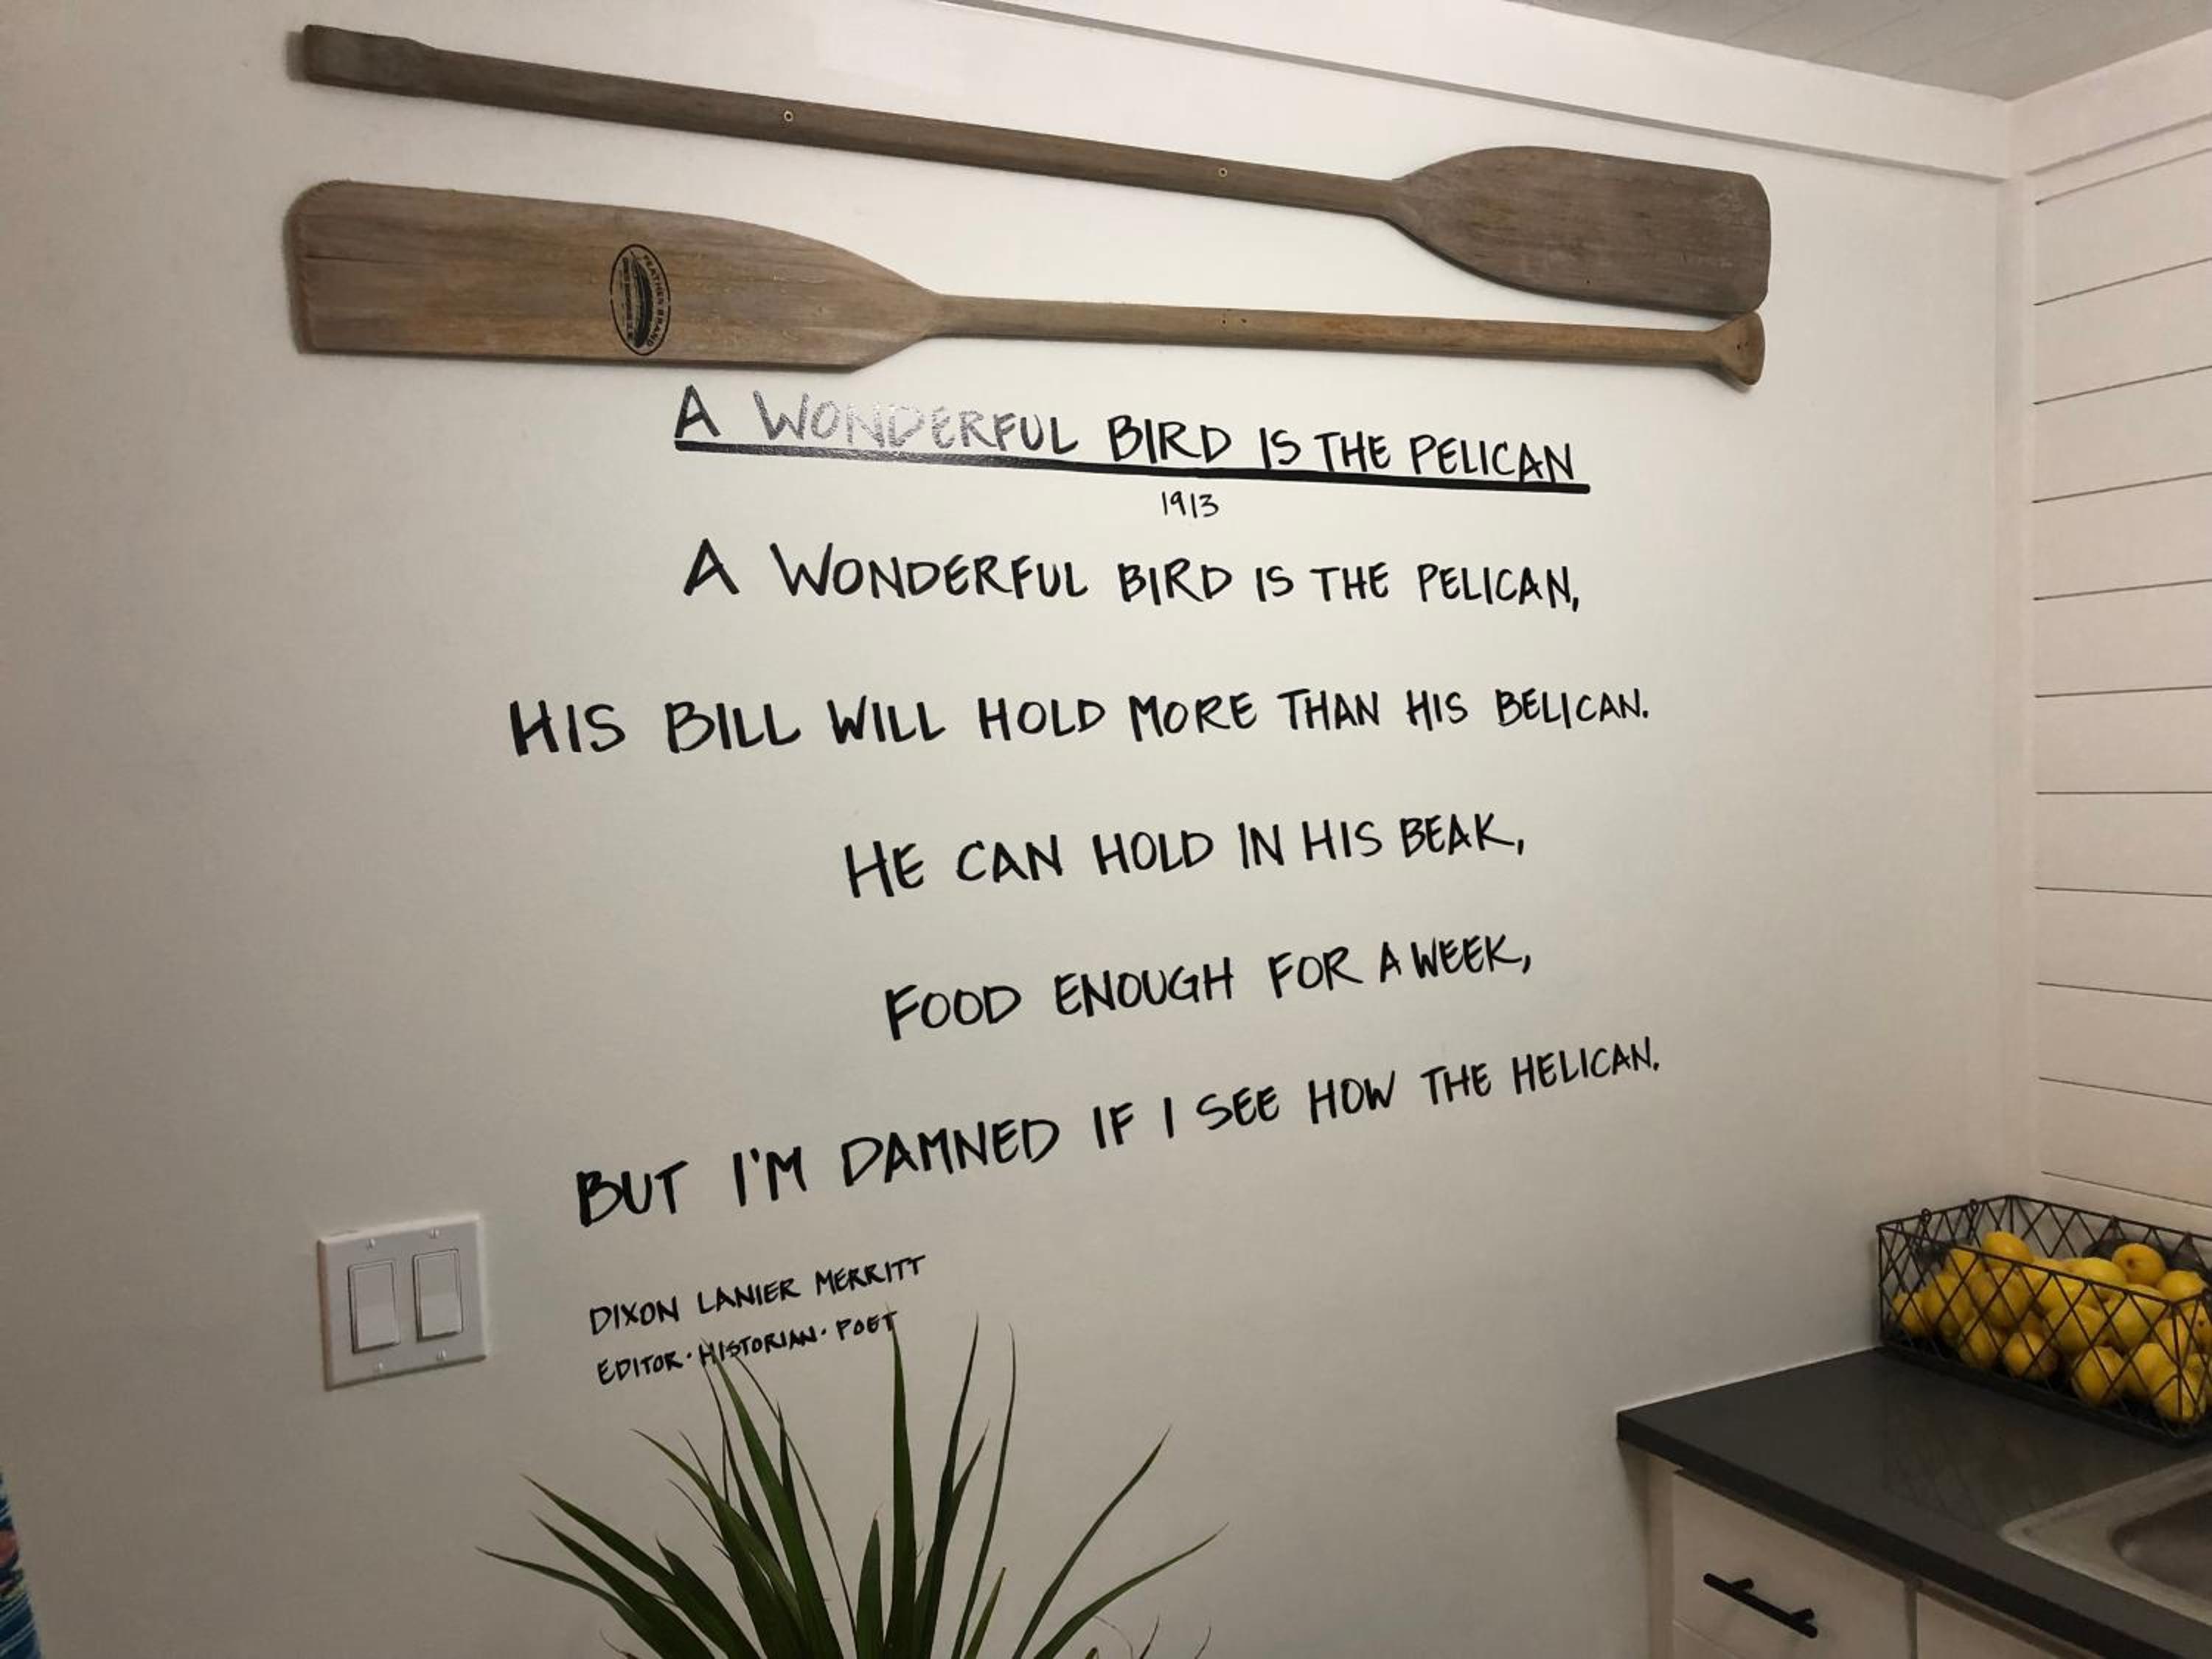 FEATHER BRAND
A WONDERFUL BIRD IS THE PELICAN
1913
A WONDERFUL BIRD IS THE PELICAN,
HIS BILL WILL HOLD MORE THAN HIS BELICAN.
HE CAN HOLD IN HIS BEAK,
FOOD ENOUGH FOR A WEEK,
BUT I'M DAMNED IF I SEE HOW THE HELICAN.
DIXON LANIER MERRITT
EDITOR · HISTORIAN · POET